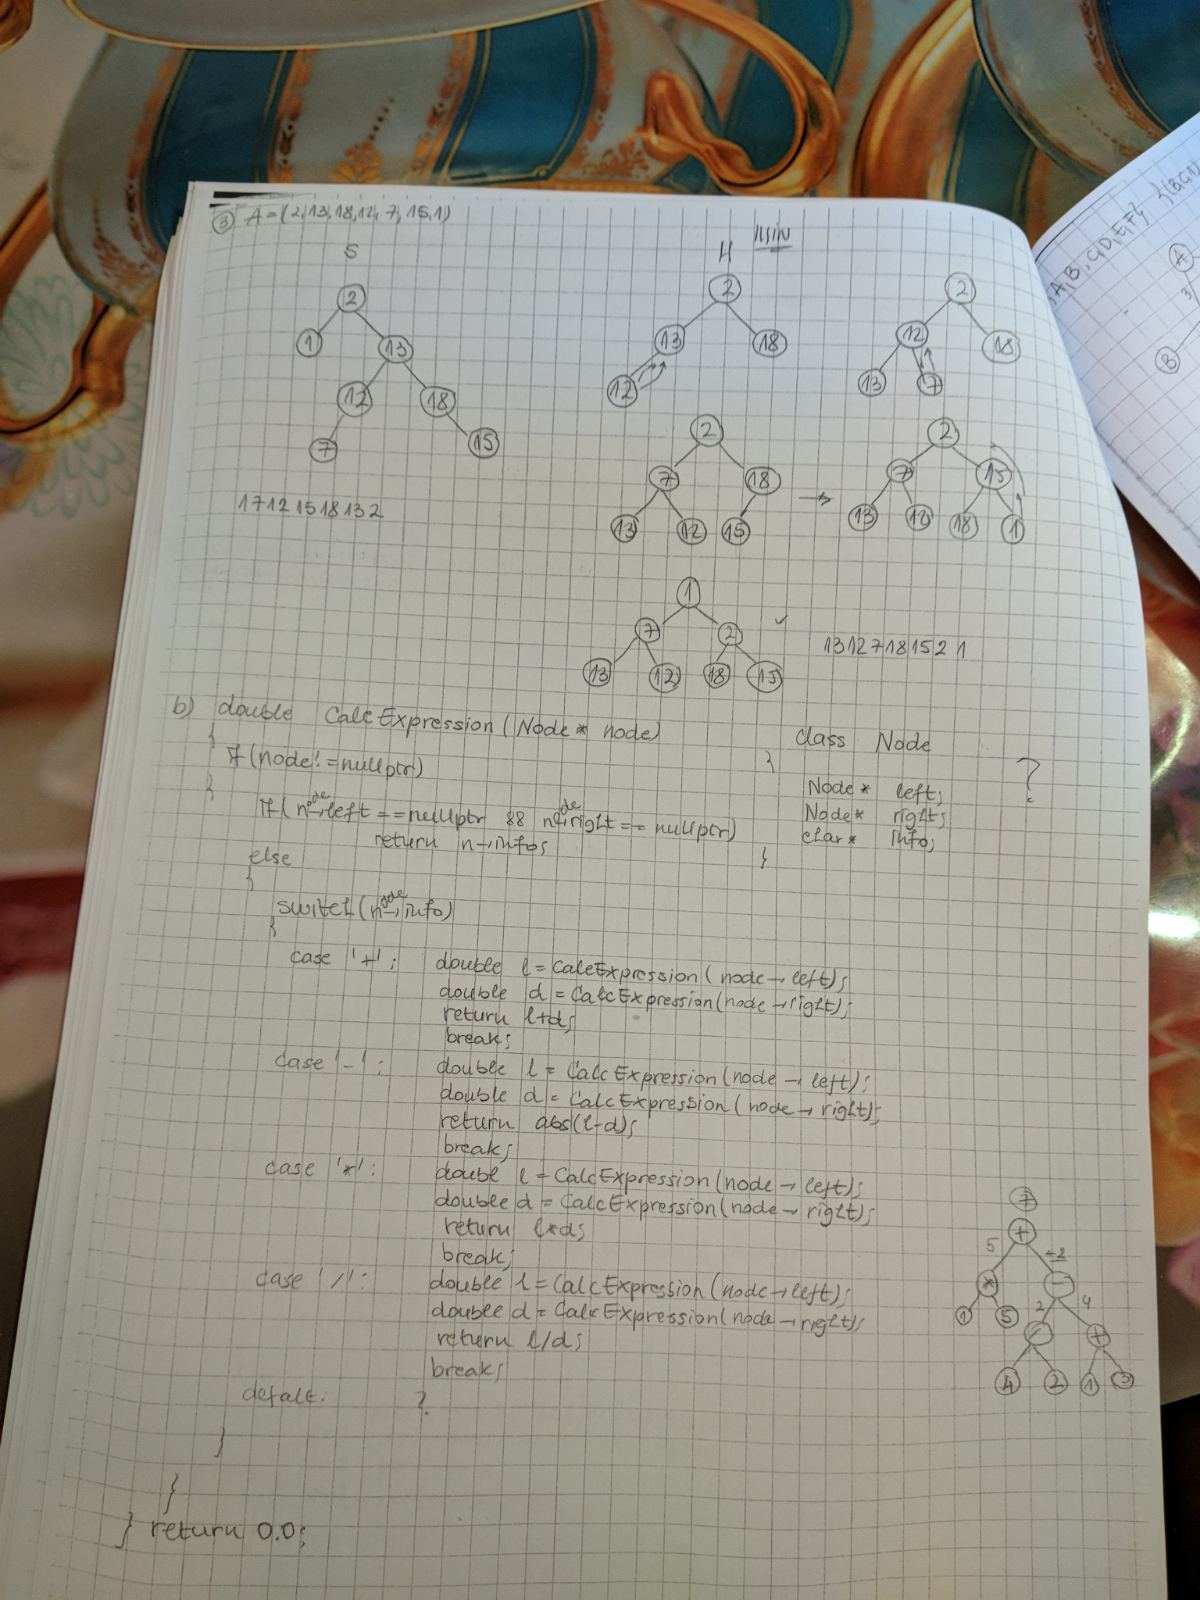 ③ A = (2,13,18,12,7,15,1)
S
H
min
2
1 13
12 18
7 15
1 7 12 15 18 13 2
2
13 18
12
2
12 18
13 7
2
7 18
13 12 15
→
2
7 15
13 12 18 1
1
7 2
13 12 18 15
✓
13 12 7 18 15 2 1
b) double CalcExpression(Node* node)
{
if(node!=nullptr)
{
if(node→left==nullptr && node→right==nullptr)
return n→info;
else
{
switch(node→info)
{
case '+': double l = CalcExpression(node→left);
double d = CalcExpression(node→right);
return l+d;
break;
case '-': double l = CalcExpression(node→left);
double d = CalcExpression(node→right);
return abs(l-d);
break;
case '*': double l = CalcExpression(node→left);
double d = CalcExpression(node→right);
return l*d;
break;
case '/': double l = CalcExpression(node→left);
double d = CalcExpression(node→right);
return l/d;
break;
defalt: ?
}
}
} return 0.0;
class Node
{
Node* left;
Node* right;
char* info;
}
?
7
+
5 -2
* -
1 5 2 4
/ +
4 2 1 3
A,B,C,D,E,F}
A
3
B